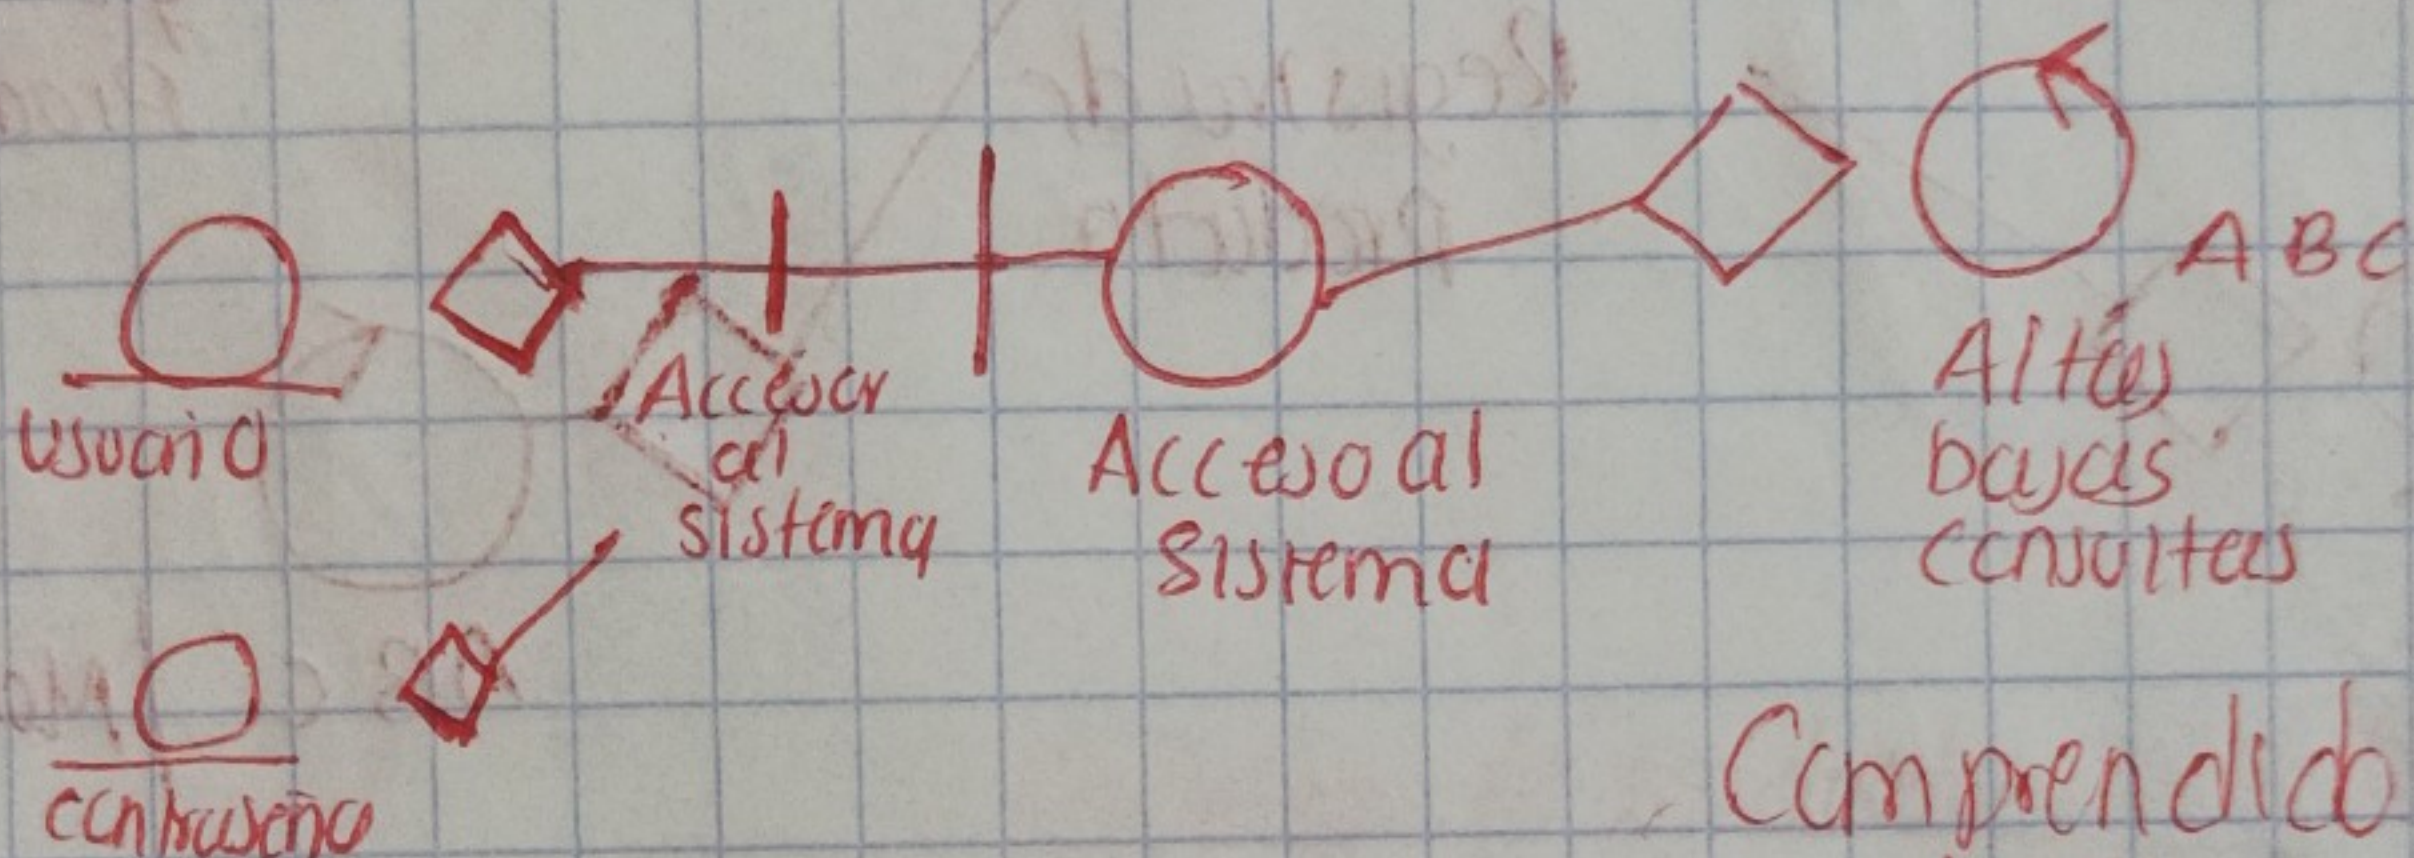 usuario
Accesar
al
sistema
Acceso al
Sistema
A B C
Altas
bajas
consultas
contraseña
Comprendido